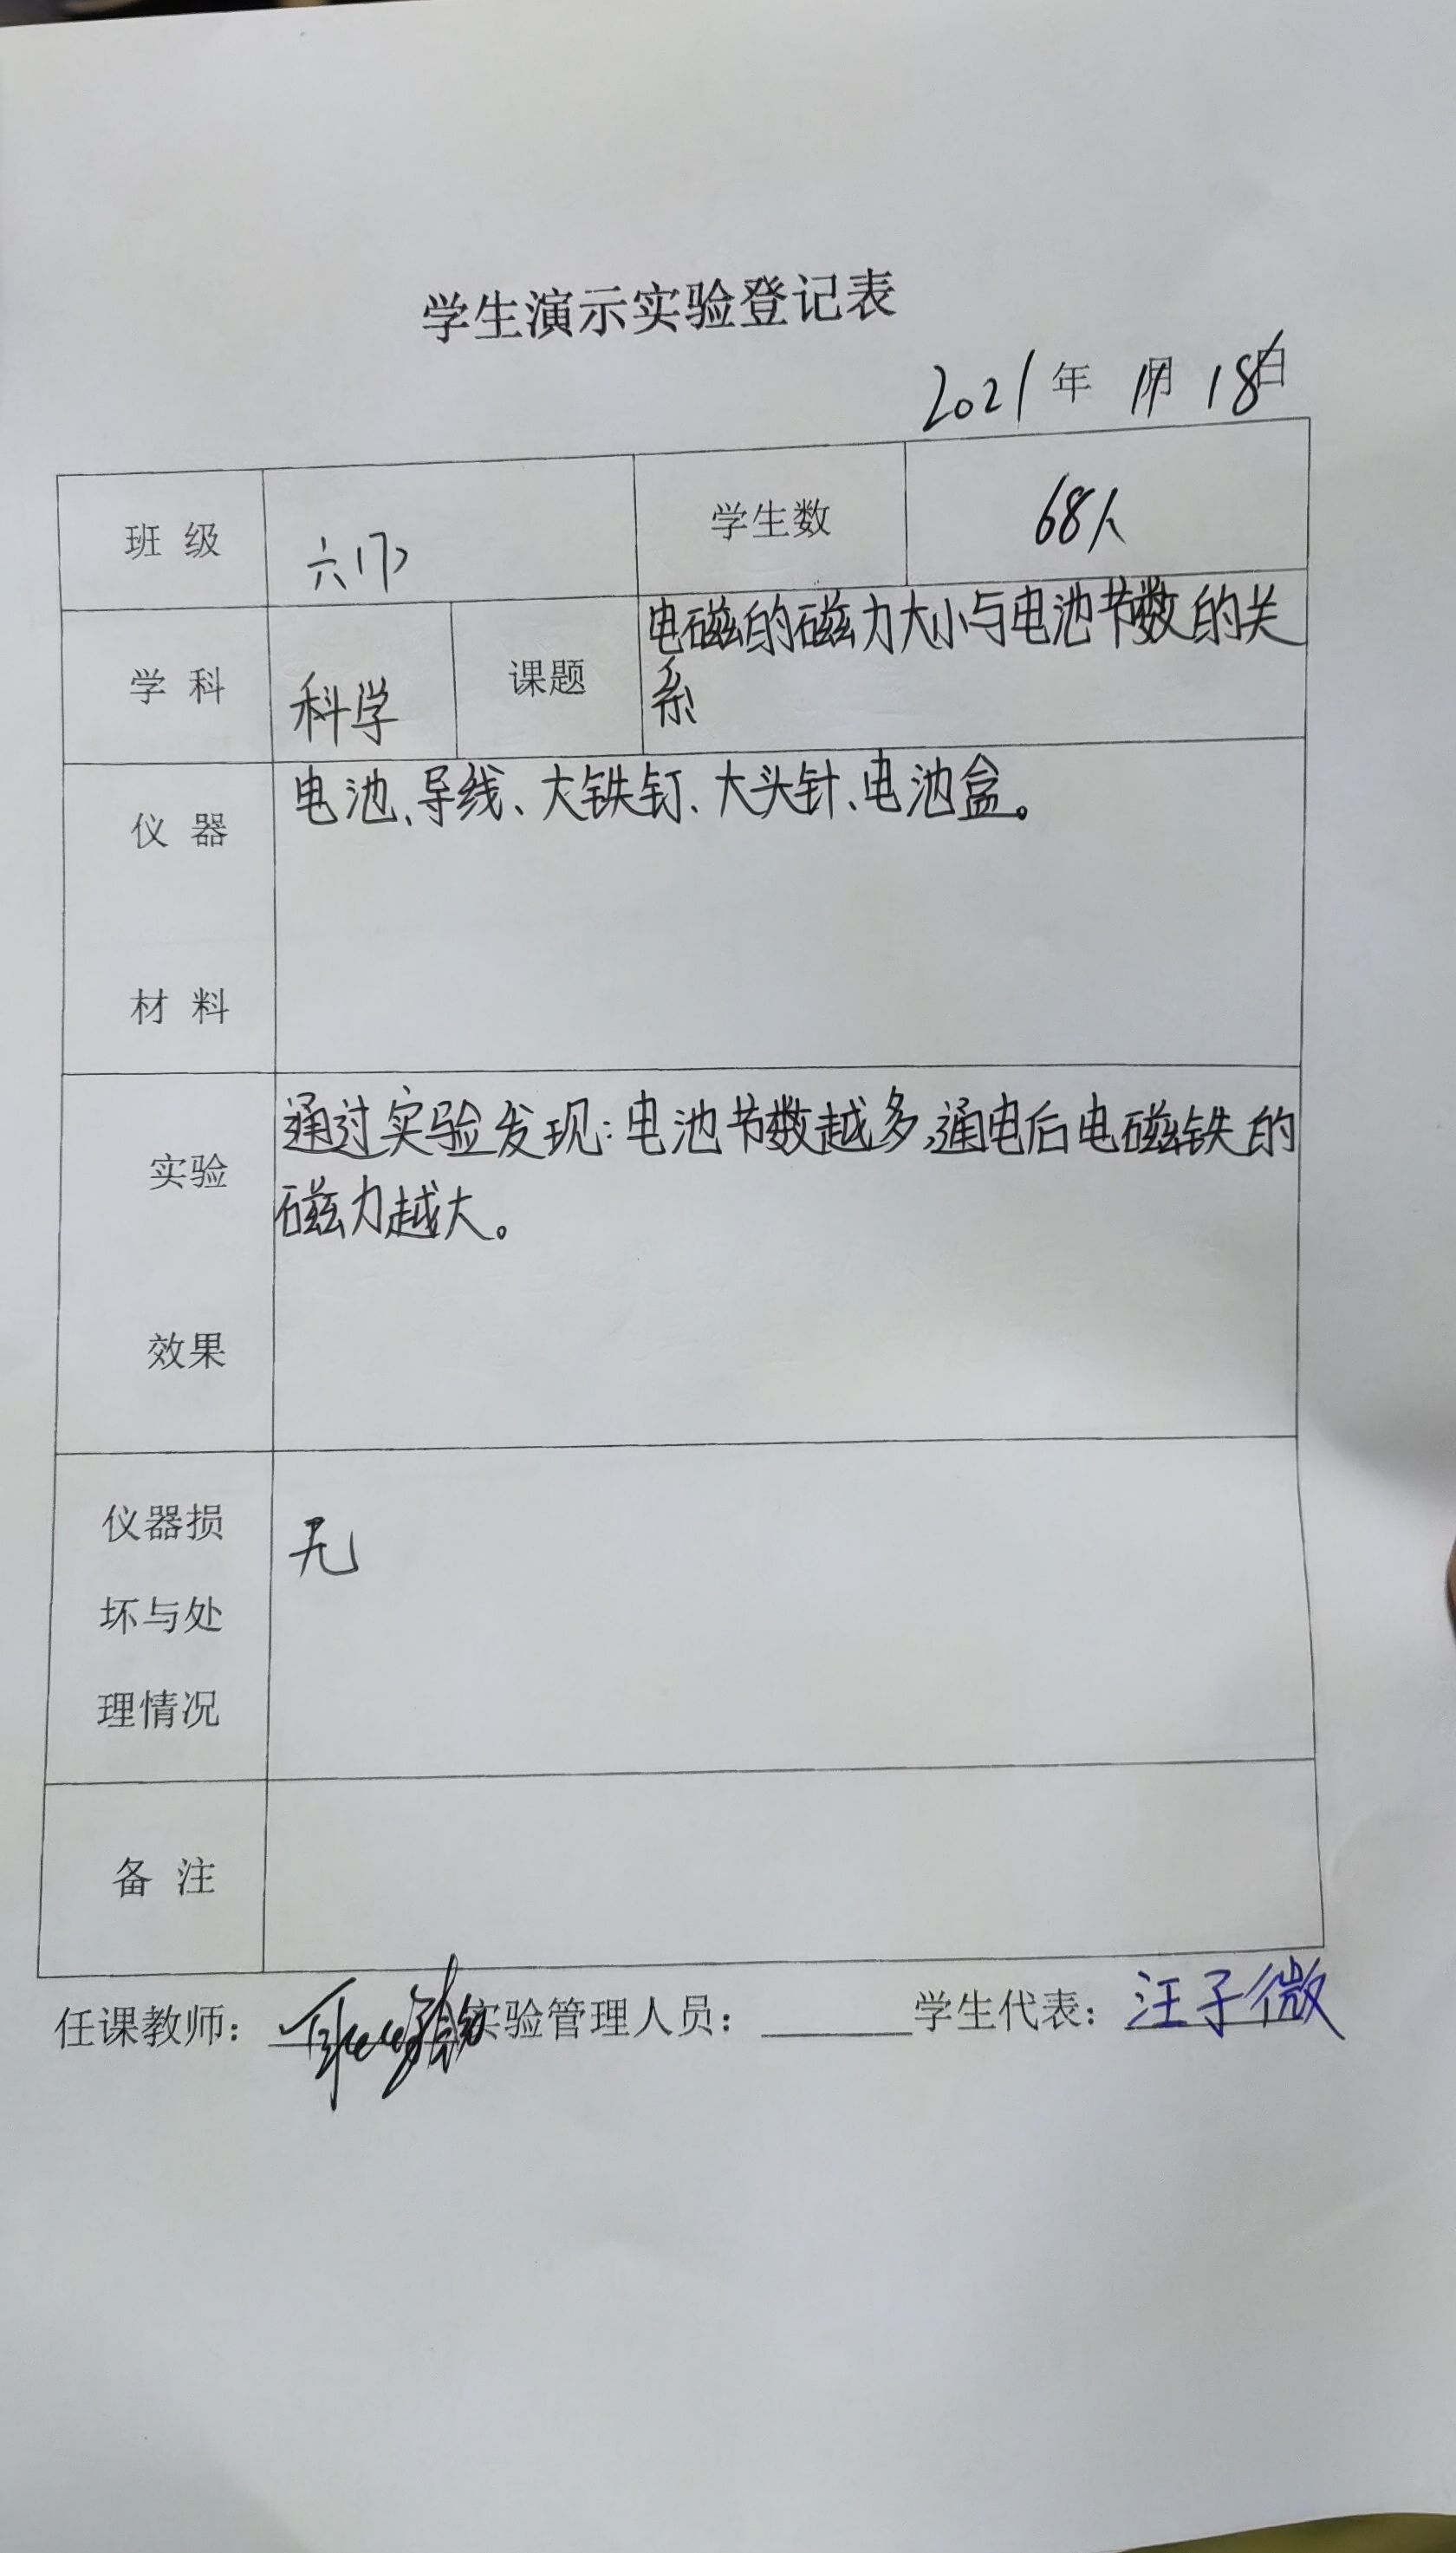 学生演示实验登记表
2021年 11月 18日
班 级 学生数 68人
学 科 科学 课题 电磁的磁力大小与电池节数的关
系
仪 器 电池、导线、大铁钉、大头针、电池盒。
材 料
实验 通过实验发现:电池节数越多,通电后电磁铁的
磁力越大。
效果
仪器损
坏与处 无
理情况
备 注
任课教师: 实验管理人员: 学生代表: 汪子微